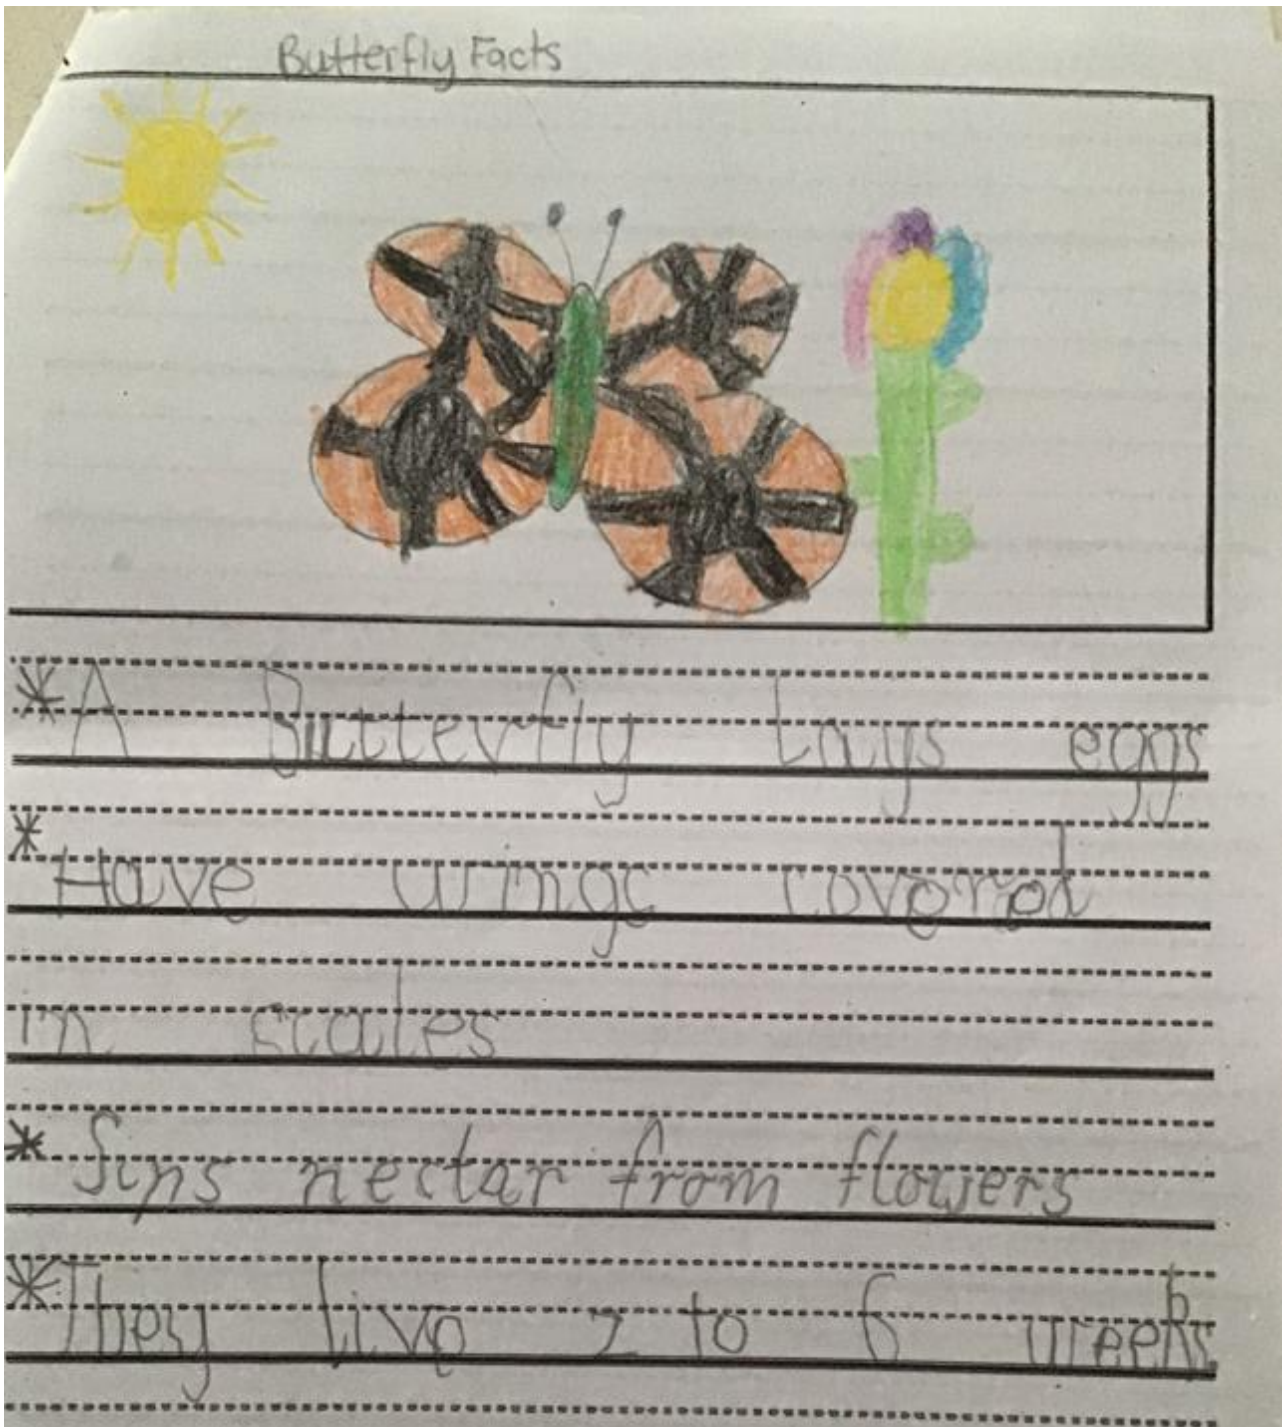 Butterfly Facts
* A Butterfly lays eggs
* Have wings covered
in scales
* Sips nectar from flowers
* They live 2 to 6 weeks